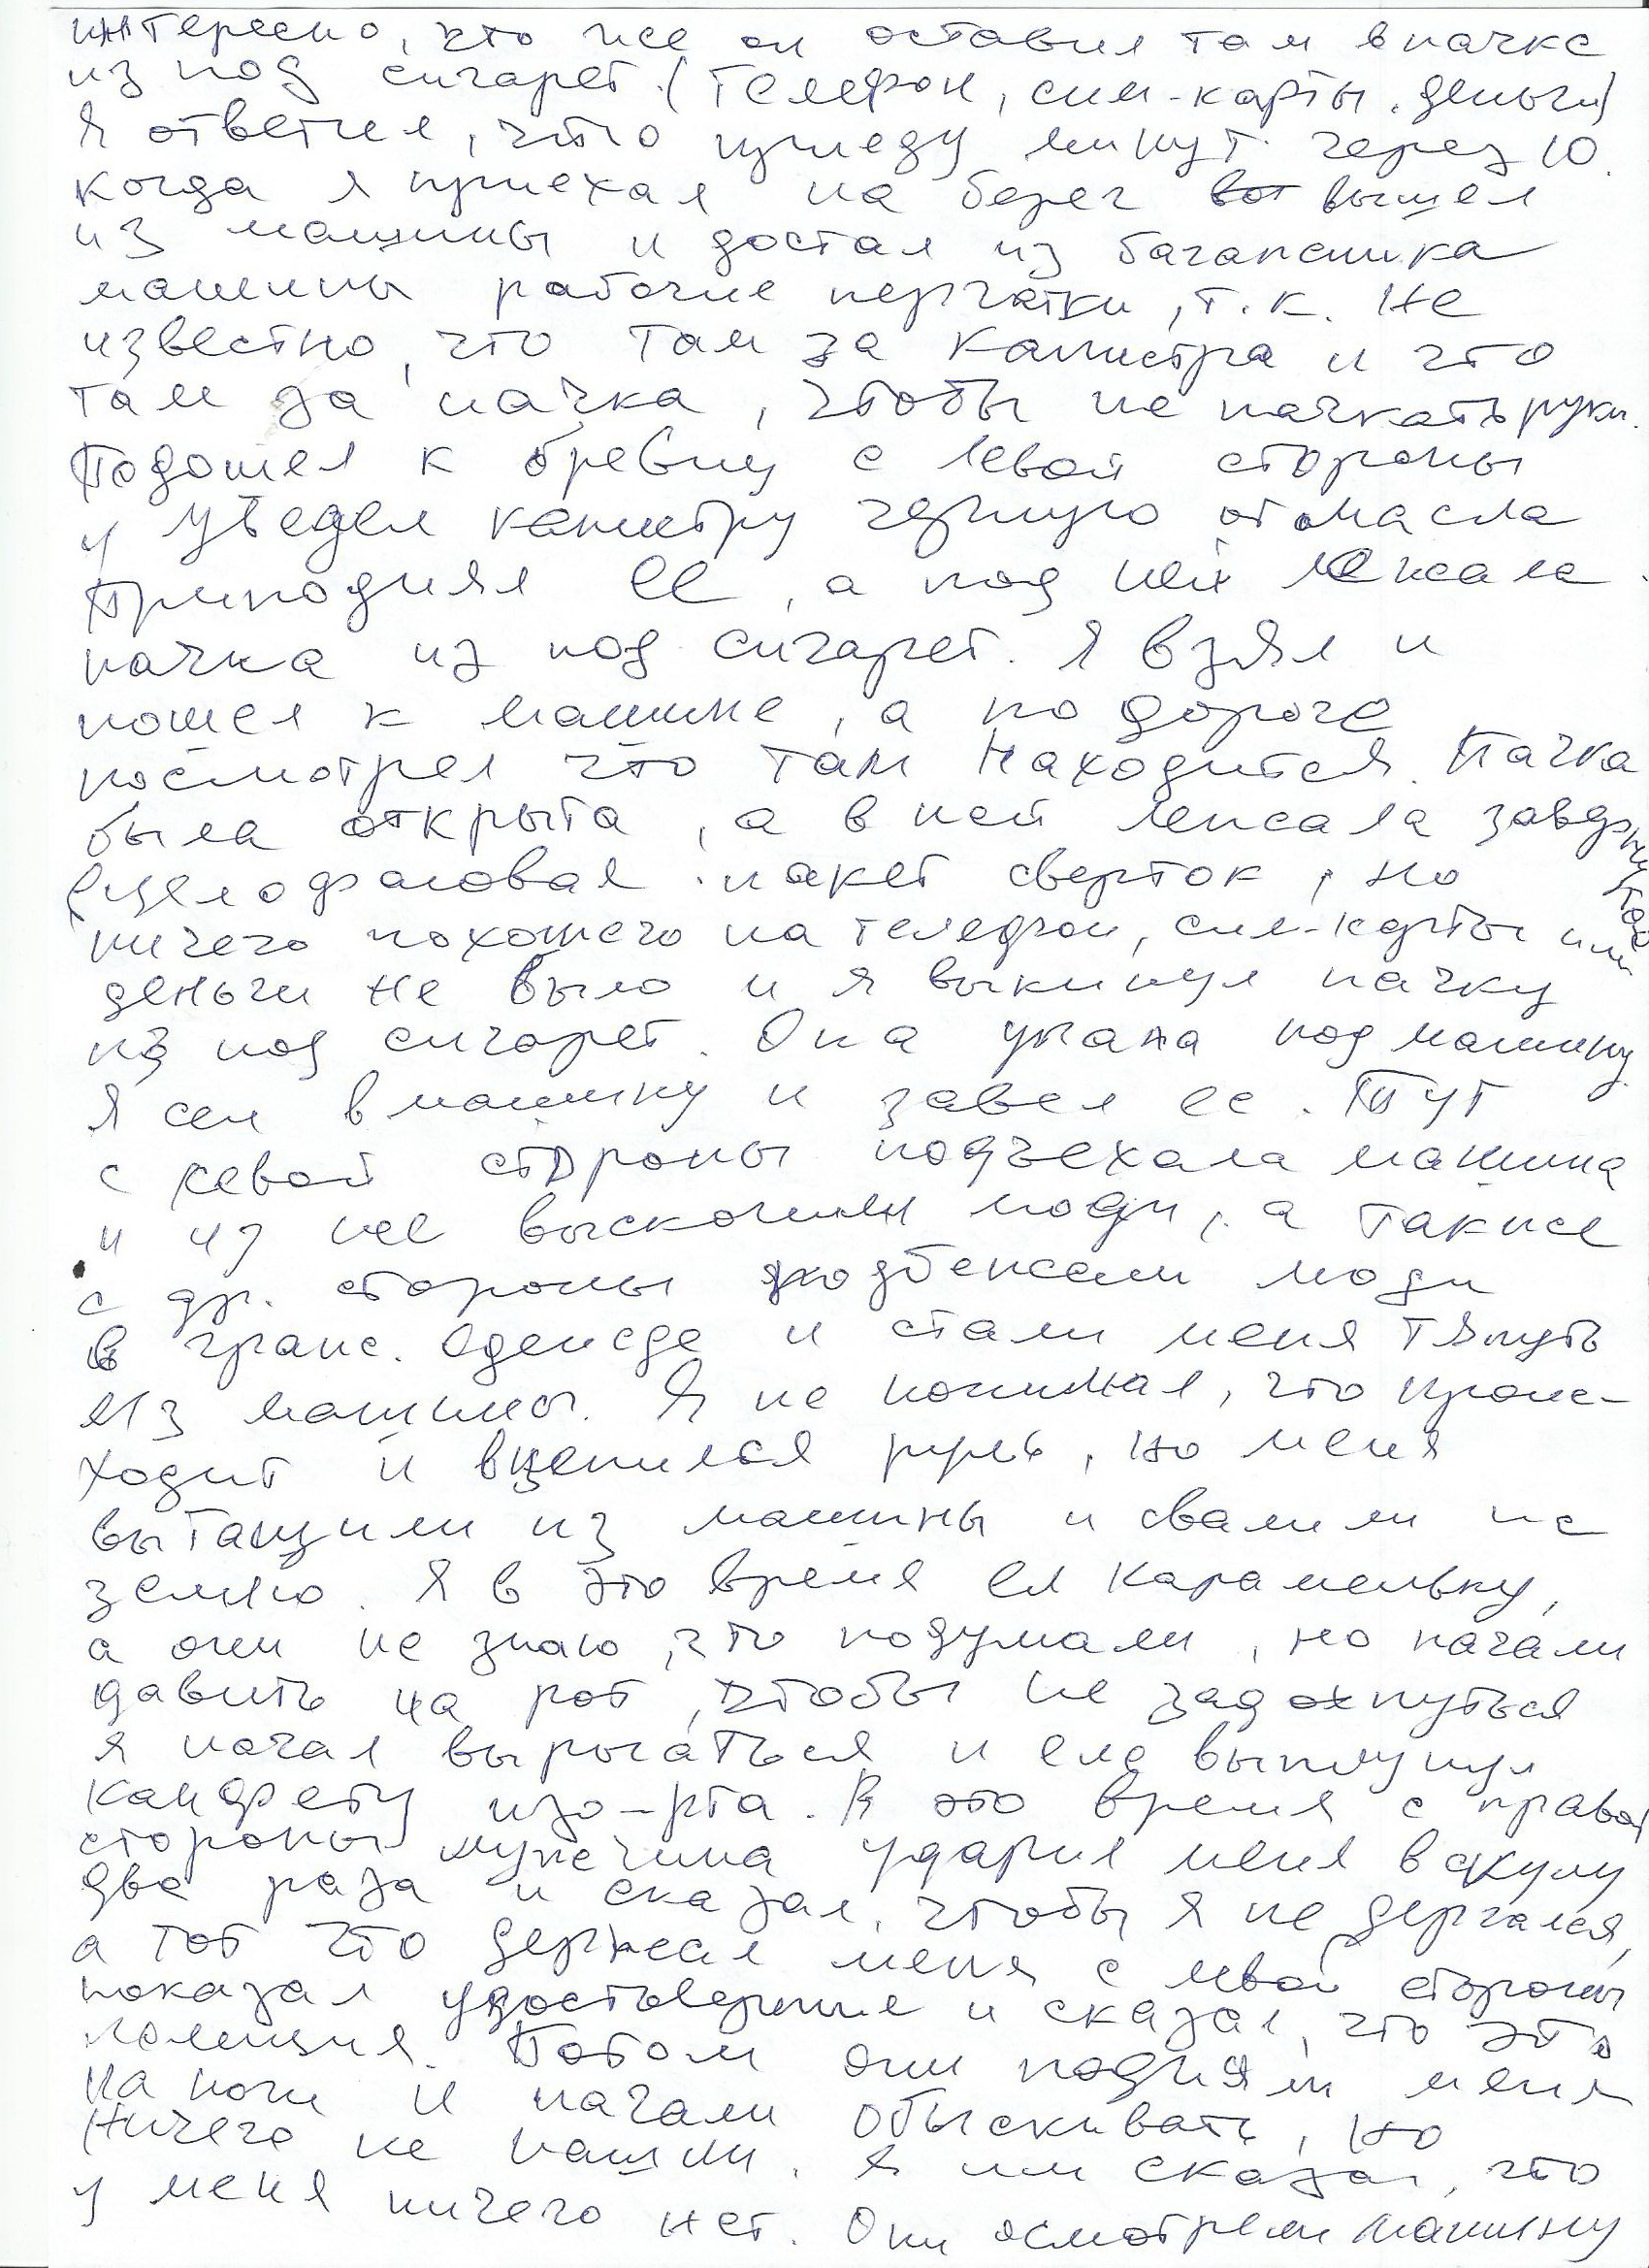 интересно, что же он оставил там в пачке
из под сигарет. (Телефон, сим-карты, деньги)
Я ответил, что приеду минут через 10.
когда я приехал на берег вот вышел
из машины и достал из багажника
машины рабочие перчатки, т.к. не
известно, что там за канистра и что
там за пачка, чтобы не пачкать руки.
Подошел к бревну с левой стороны
и уведел канистру черную от масла
приподнял ее, а под ней лежала
пачка из под сигарет. Я взял и
пошел к машине, а по дороге
посмотрел что там находится. Пачка
была открыта, а в ней лежала
целофановая пакет сверток, но
ничего похожего на телефон, сим-карты или
деньги не было и я выкинул пачку
из под сигарет. Она упала под машину.
Я сел в машину и завел ее. Тут
с левой стороны подъехала машина
и из нее выскочили люди, а также
с др. стороны подбежали люди
в гражд. одежде и стали меня тянуть
из машины. Я не понимал, что проис-
ходит и вцепился руль, но меня
вытащили из машины и свалили на
землю. Я в это время ел карамельку,
а они не знаю, что подумали, но начали
давить на рот, чтобы не задохнуться
я начал вырываться и еле выплунул
канфету изо-рта. В это время с правой
стороны мужчина ударил меня в скулу
два раза и сказал, чтобы я не дергался,
а тот что держал меня с левой стороны
показал удостоверение и сказал, что это
полиция. Потом они подняли меня
на ноги и начали обыскивать, но
ничего не нашли. Я им сказал, что
у меня ничего нет. Они осмотрели машину